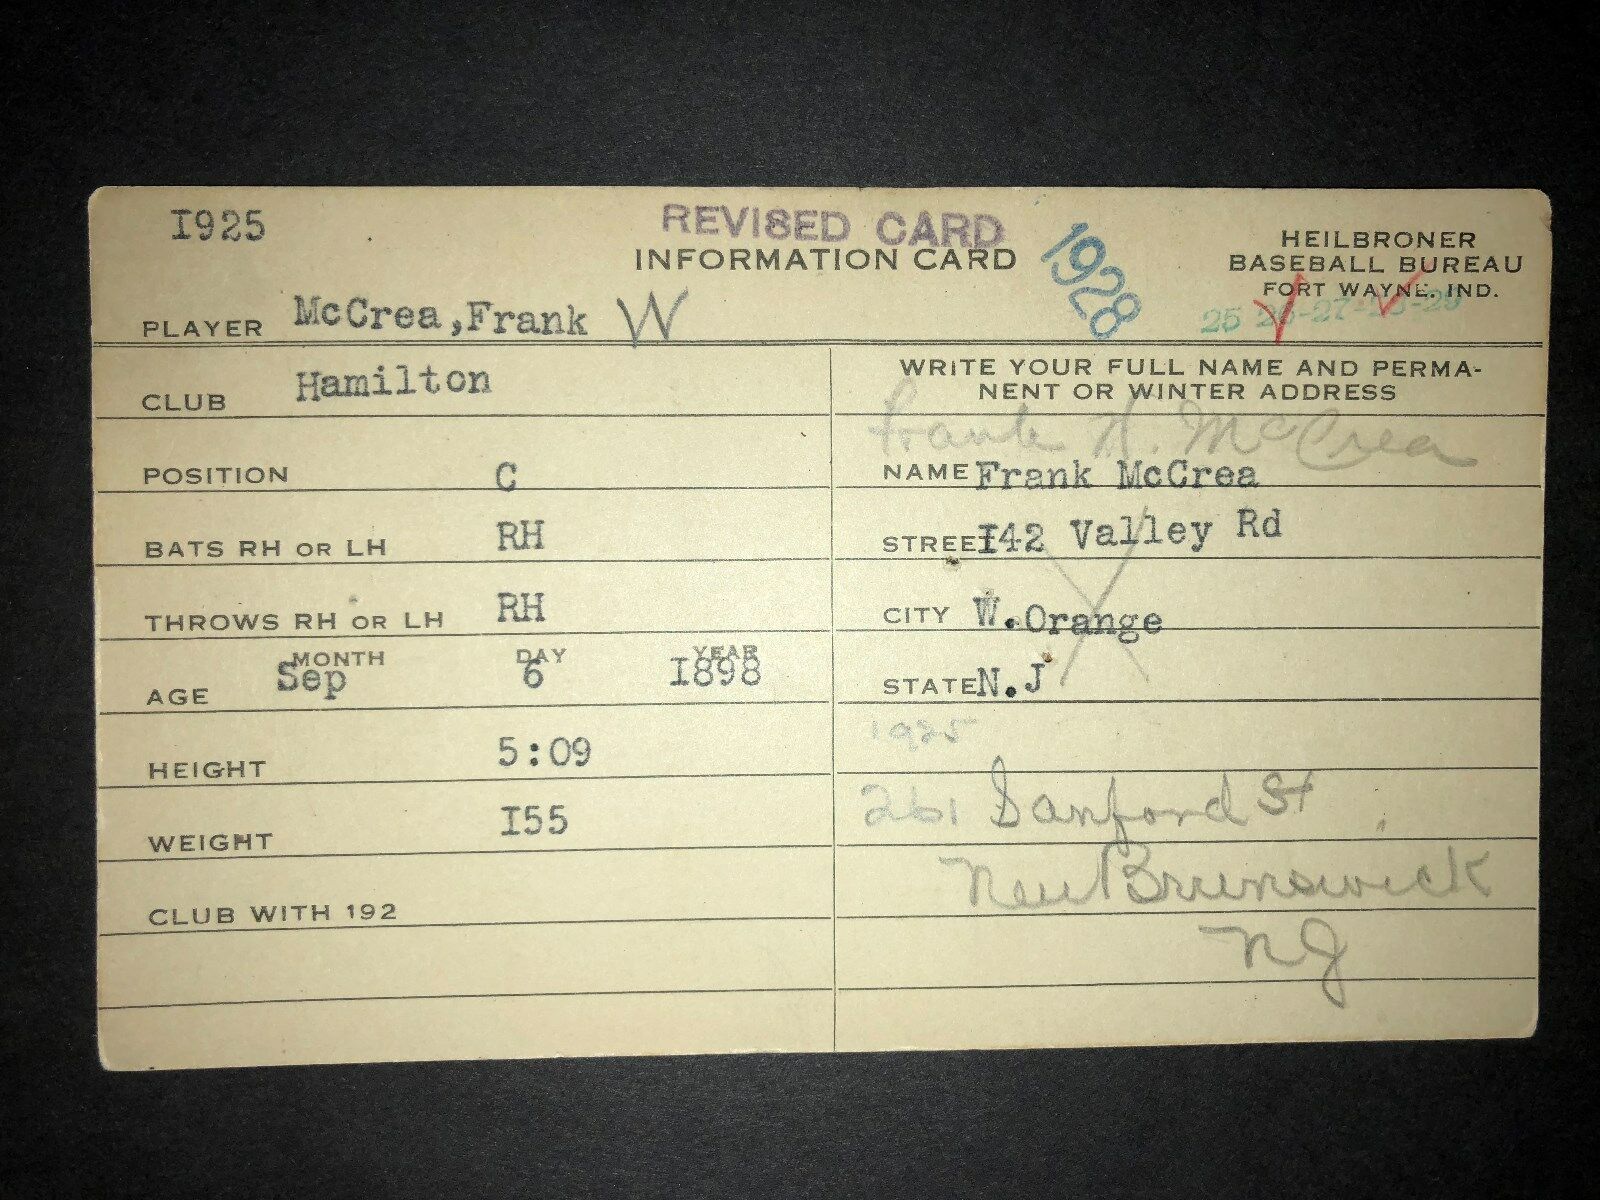 1925
REVISED CARD
INFORMATION CARD
1928
HEILBRONER
BASEBALL BUREAU
FORT WAYNE, IND.
25 26-27-28-29
PLAYER McCrea,Frank W
CLUB Hamilton
POSITION C
BATS RH OR LH RH
THROWS RH OR LH RH
MONTH DAY YEAR
AGE Sep 6 1898
HEIGHT 5:09
WEIGHT 155
CLUB WITH 192
WRITE YOUR FULL NAME AND PERMA-
NENT OR WINTER ADDRESS
Frank W. McCrea
NAME Frank McCrea
STREET 142 Valley Rd
CITY W.Orange
STATE N.J
1925
261 Sanford St
New Brunswick
NJ